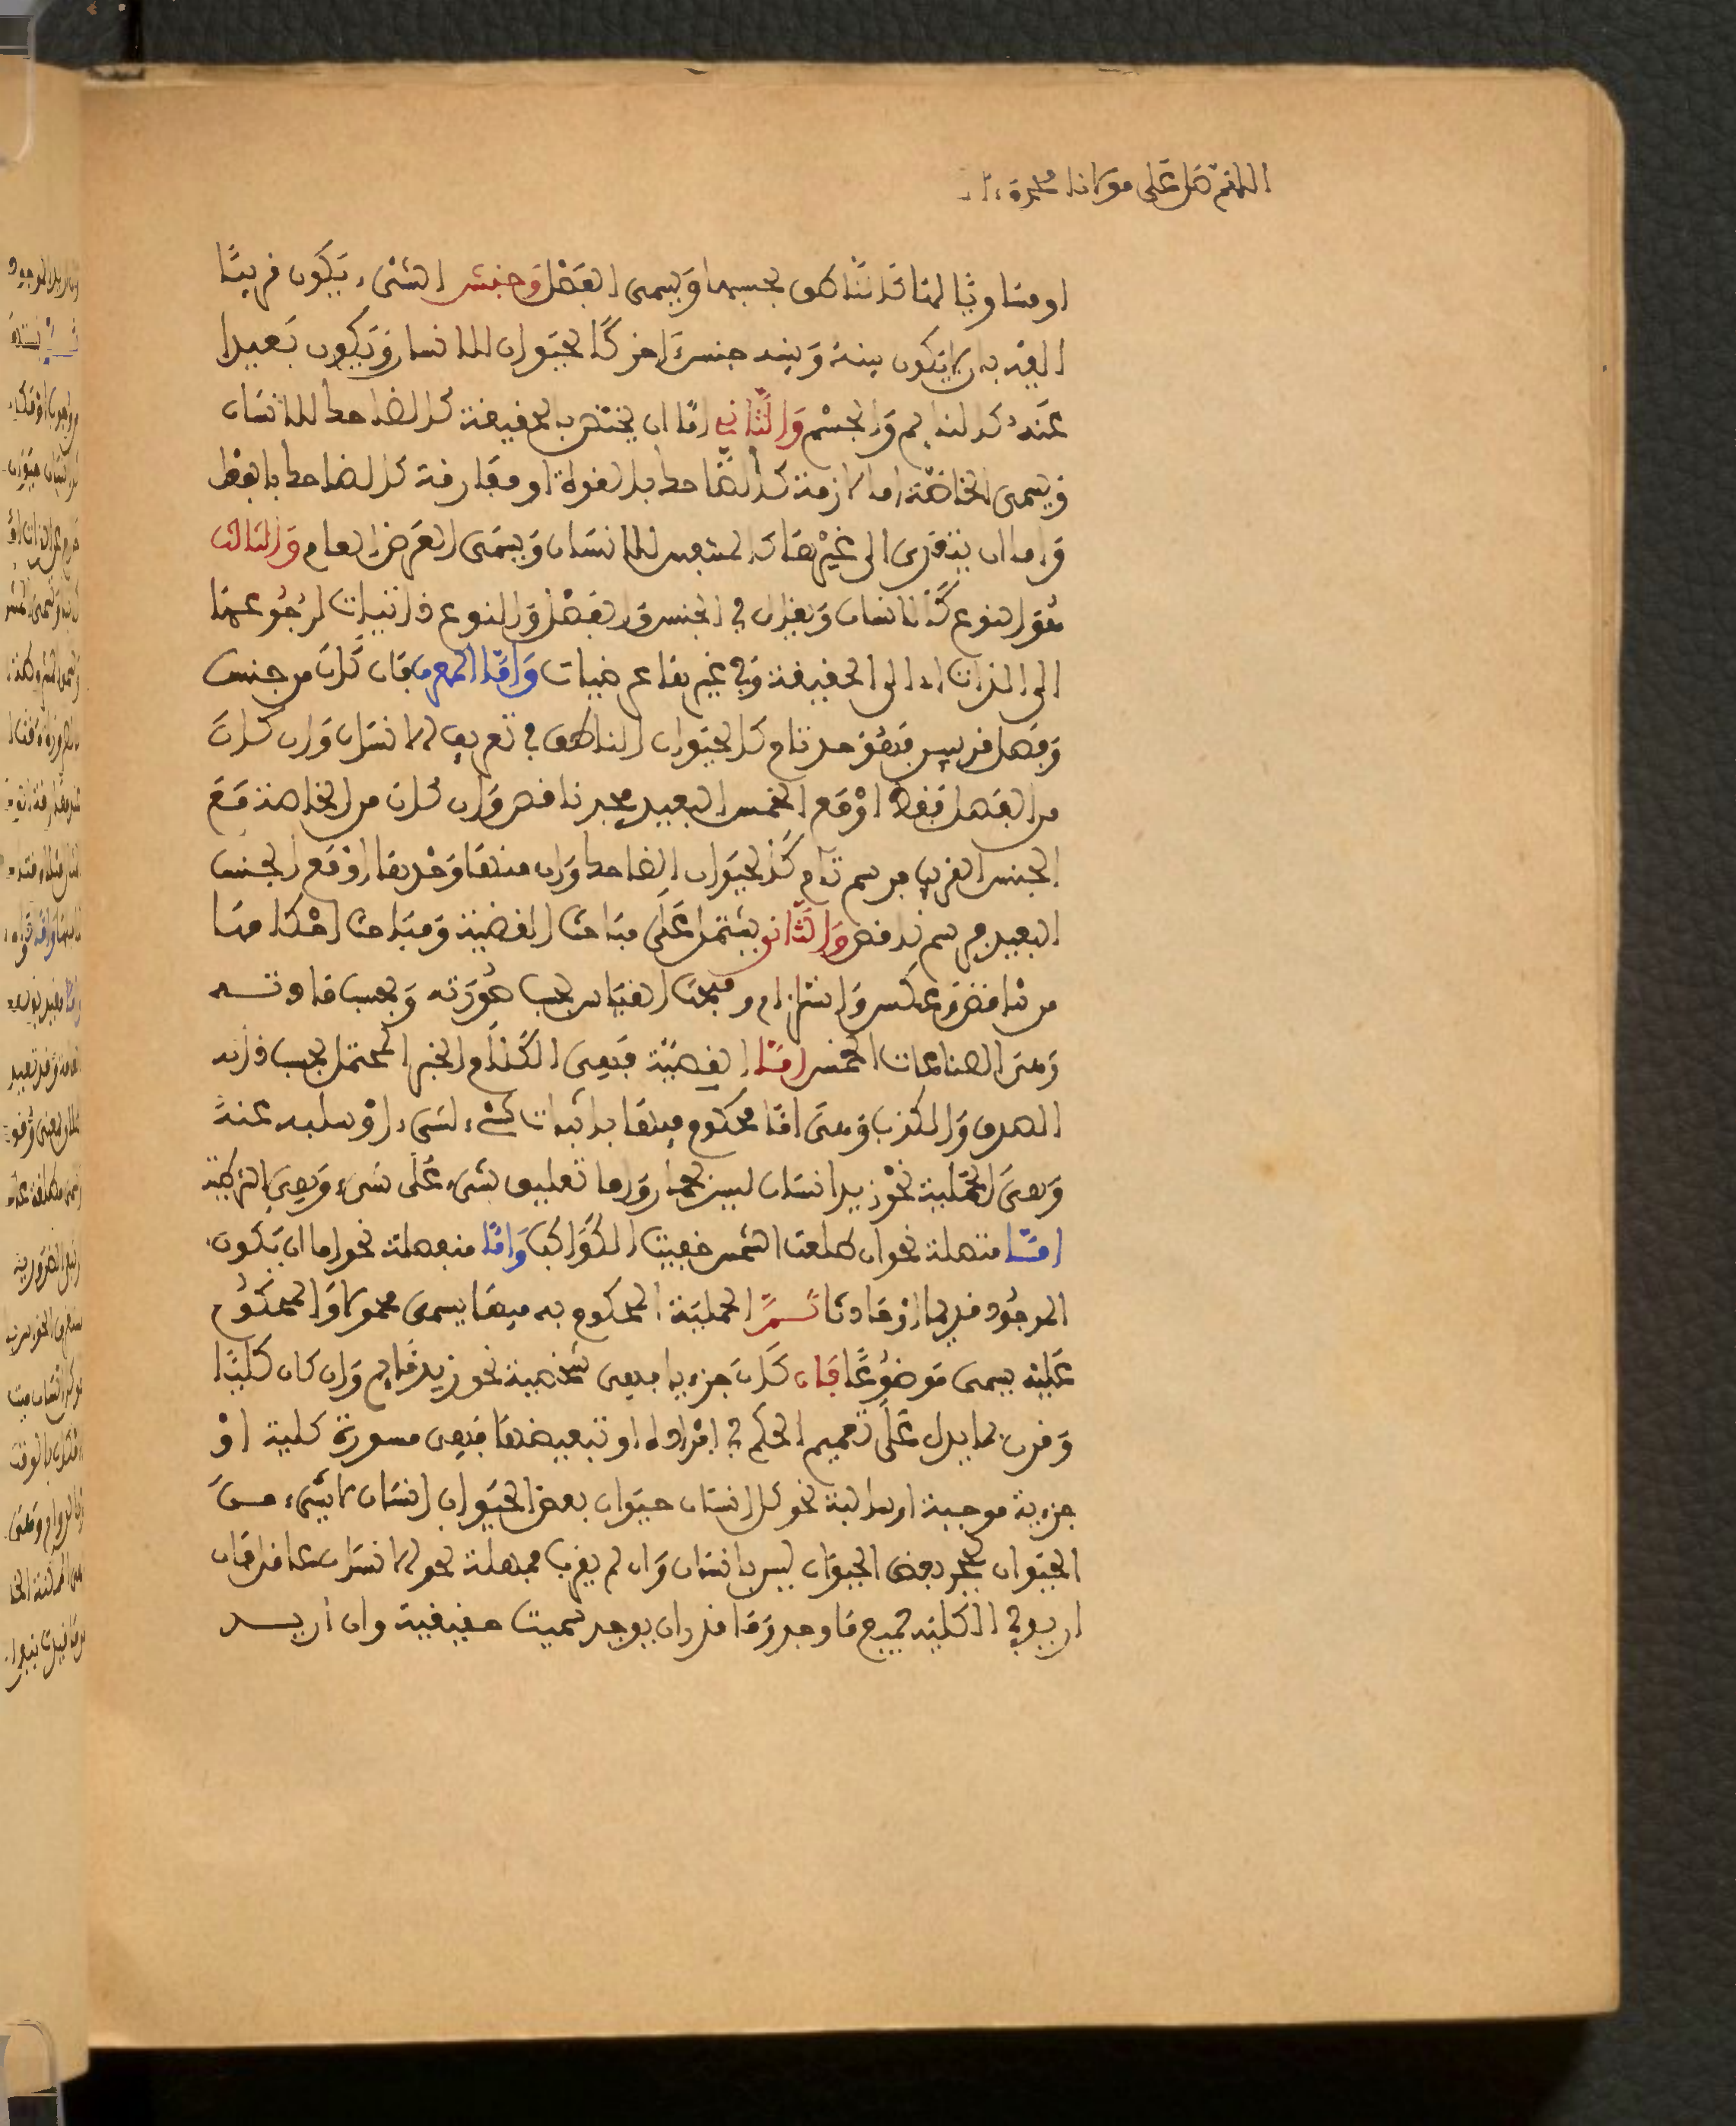 اللهم صل على مولانا محمد
او مساويا لها كالناطق بحسبها ويسمى الفصل وجنس الشيء يكون قريبا
اليه بان لا يكون بينه وبينه جنس آخر كالحيوان للانسان ويكون بعيدا
عنه كالنامي والجسم والثاني اما ان يختص بالحقيقة كالضاحك للانسان
ويسمى الخاصة اما لازمة كالضاحك بالقوة او مفارقة كالضاحك بالفعل
واما ان يتعدى الى غيرها كالمتنفس للانسان ويسمى العرض العام والثالث
هو النوع كالانسان ويقال في الجنس والفصل والنوع ذاتيات لرجوعها
الى الذات اي الى الحقيقة وفي غيرها عرضيات واما المعرف فان كان من جنس
وفصل قريبين فهو حد تام كالحيوان الناطق في تعريف الانسان وان كان
من الفصل فقط او مع الجنس البعيد فحد ناقص وان كان من الخاصة مع
الجنس القريب فرسم تام كالحيوان الضاحك وان منها وحدها او مع الجنس
البعيد فرسم ناقص والثاني يشتمل على مباحث القضية ومباحث احكامها
من تناقض وعكس واستلزام ومبحث القياس بحسب صورته وبحسب مادته
وهى الصناعات الخمس اما القضية فهى الكلام الخبر المحتمل بحسب ذاته
الصدق والكذب وهى اما محكوم فيها باثبات شيء لشيء او سلبه عنه
وهى الحملية نحو زيد انسان ليس بحمار واما تعليق شيء على شيء وهى الشرطية
اما متصلة نحو ان طلعت الشمس خفيت الكواكب واما منفصلة نحو اما ان يكون
الموجود قديما او حادثا ثم الحملية المحكوم به فيها يسمى محمولا والمحكوم
عليه يسمى موضوعا فان كان جزءيا فهى شخصية نحو زيد قايم وان كان كليا
وقرن بما يدل على تعميم الحكم في افراده او تبعيضها فهى مسورة كلية او
جزءية موجبة او سالبة نحو كل انسان حيوان بعض الحيوان انسان لا شيء من
الحيوان بحجر بعض الحيوان ليس بانسان وان لم يقرن فمهملة نحو الانسان فان
اريد في الكلية جميع ما وجد وما قدر ان يوجد سميت حقيقية وان اريد